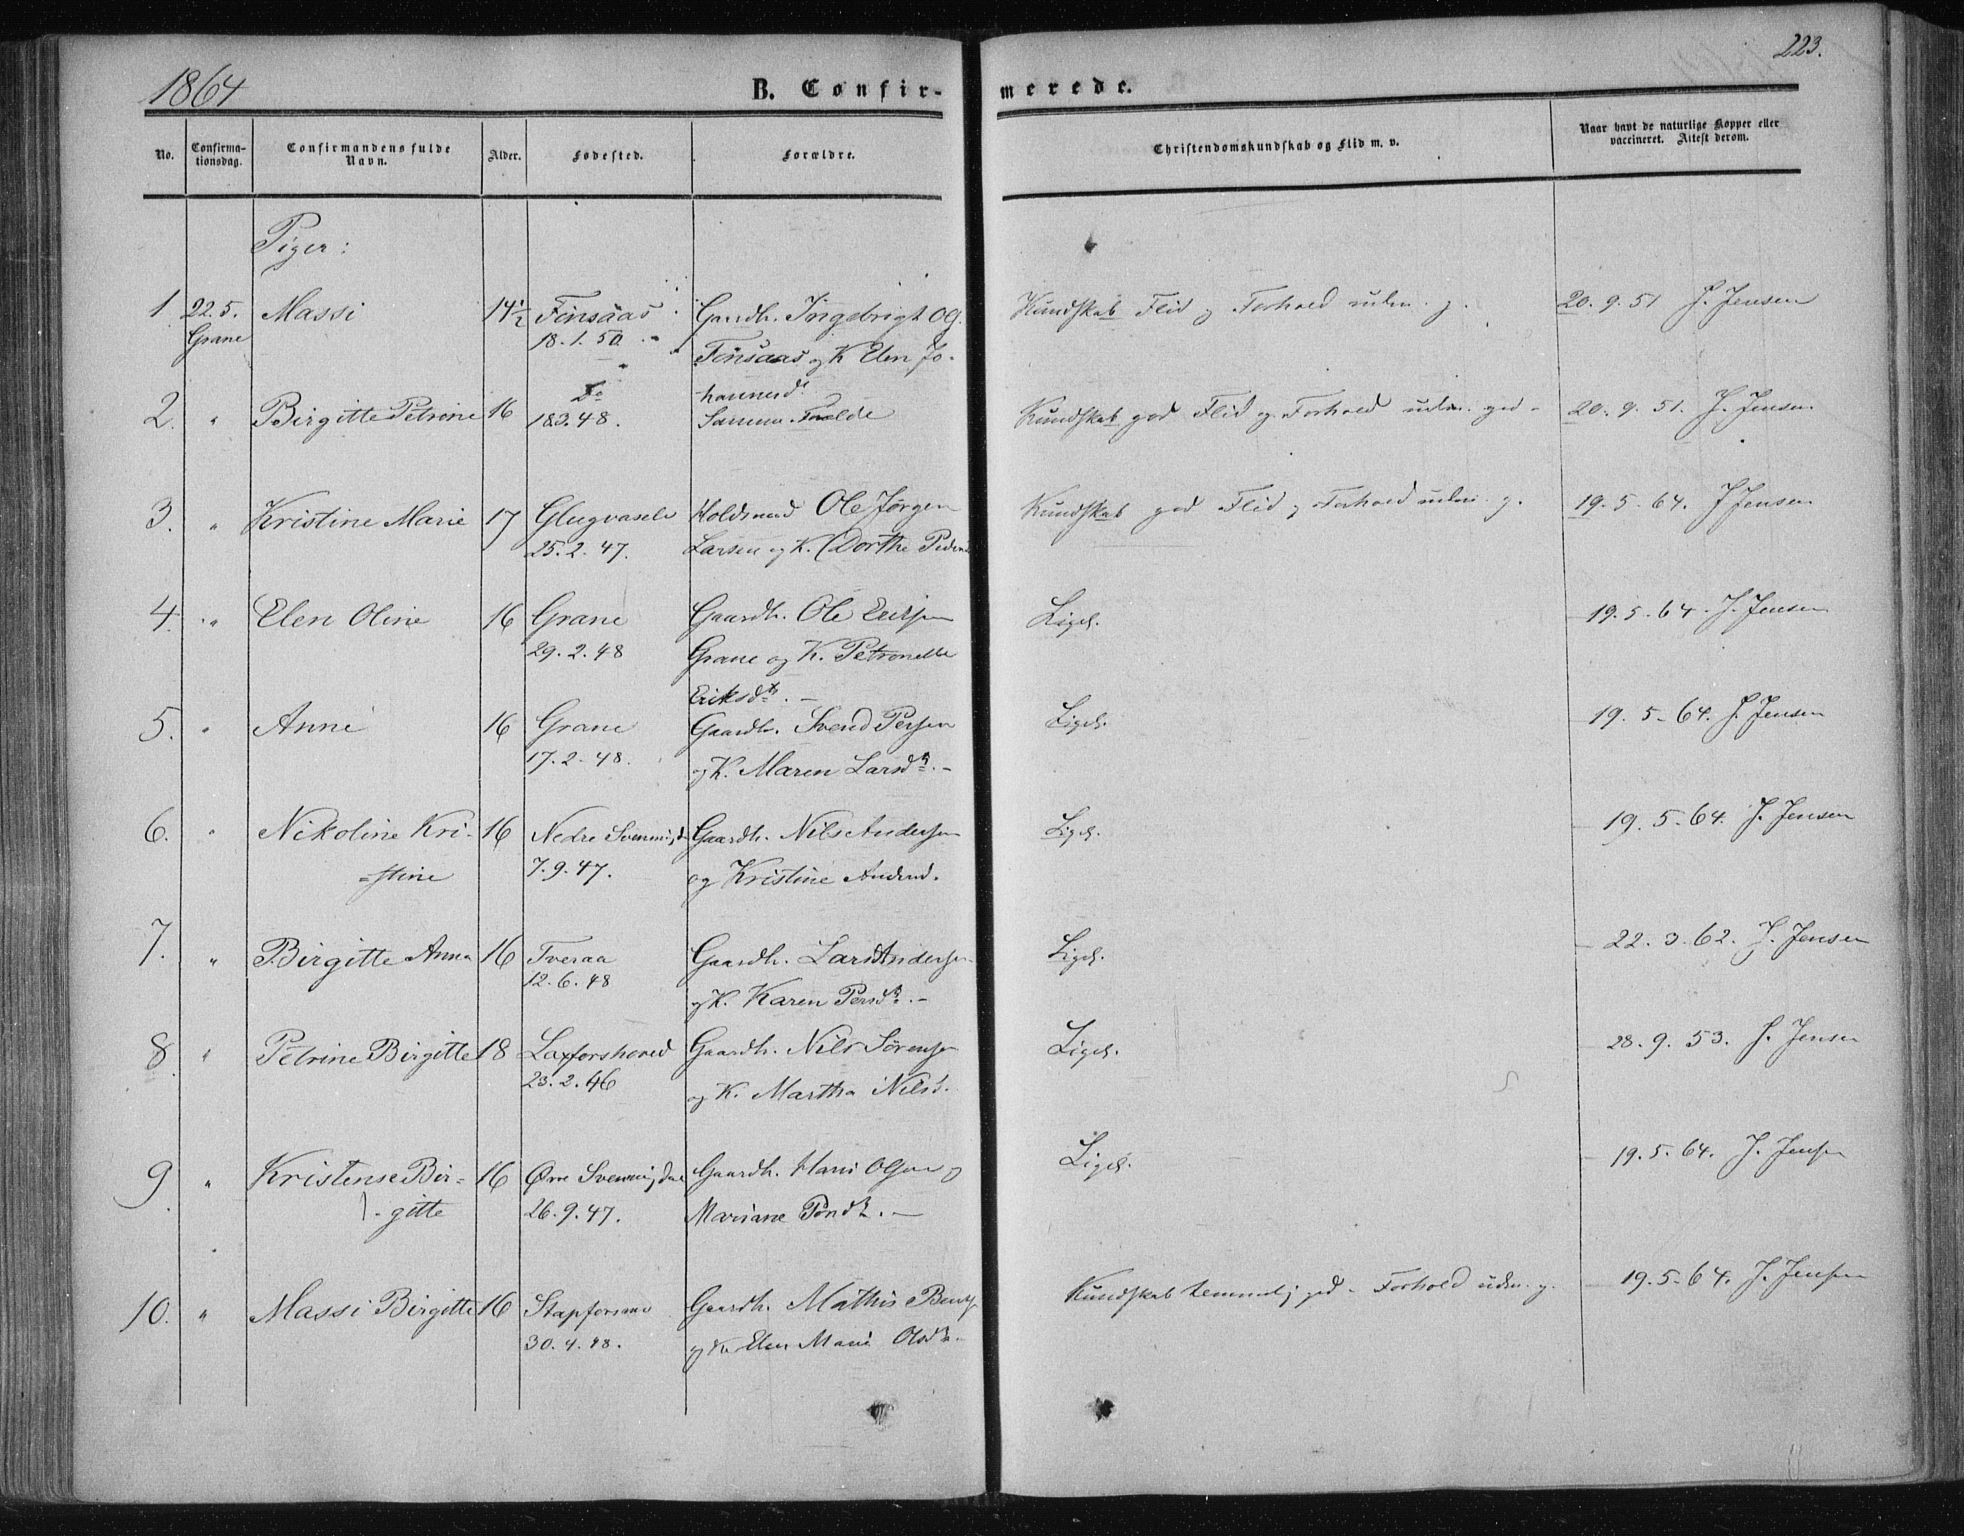 223.
1864
B. Confir-
merede.
No.
Confirma-
tionsdag.
Confirmandens fulde
Navn.
Alder.
Fødested.
Forældre.
Christendomskundskab og Flid m. v.
Naar havt de naturlige Kopper eller
vaccineret. Attest derom.
Piger:
1 22.5. Massi 14½ Finsaas Gaardb. Ingebrigt Og. Kundskab Flid og Forhold udm. g. 20.9.51 J. Jensen
Grane 18.1.50 Finsaas og K. Elen Jo-
Do hannesd.
2. " Birgitte Petrine 16 18.3.48. Samme Forælde Kundskab god Flid og Forhold udm. god - 20.9.51. J. Jensen
3. " Kristine Marie 17 Glugvasele Holdsmand Ole Jørgen Kundskab god Flid og Forhold udm. g. 19.5.64. J Jensen
25.2.47. Larsen og K. Dorthe Peders
4. " Elen Oline 16 Grane Gaardb. Ole Eriksen Ligel. 19.5.64. J. Jensen
29.2.48 Grane og K. Petronelle
Eriksdr. -
5. " Anne 16 Grane Gaardb. Svend Persen Ligel. 19.5.64. J. Jensen
17.2.48. og K. Maren Larsdr. -
6. " Nikoline Kri- 16 Nedre Svenningda Gaardb. Nils Andersen Ligel. 19.5.64. J. Jensen
-stine 7.9.47. og Kristine Andersd.
7. " Birgitte Anna 16 Tveraa Gaardb. Lars Andersen Ligel. 22.3.62. J. Jensen
12.6.48 og K. Karen Persdr. -
8. " Petrine Birgitte 18 Laxforshoved Gaardb. Nils Sørensen Ligel. 28.9.53. J. Jensen
23.2.46 og K. Martha Nilsd.
9. " Kristense Bir- 16 Øvre Svenningdal Gaardb. Hans Olsen og Ligel. 19.5.64. J. Jensen
- gitte 26.9.47. Mariane
10. " Massi Birgitte 16 Stapforsmo Gaardb. Mathis Kundskab temmelig god - Forhold udm. g. 19.5.64. J. Jensen
30.4.48. og K. Elen Marie Olsdr. -